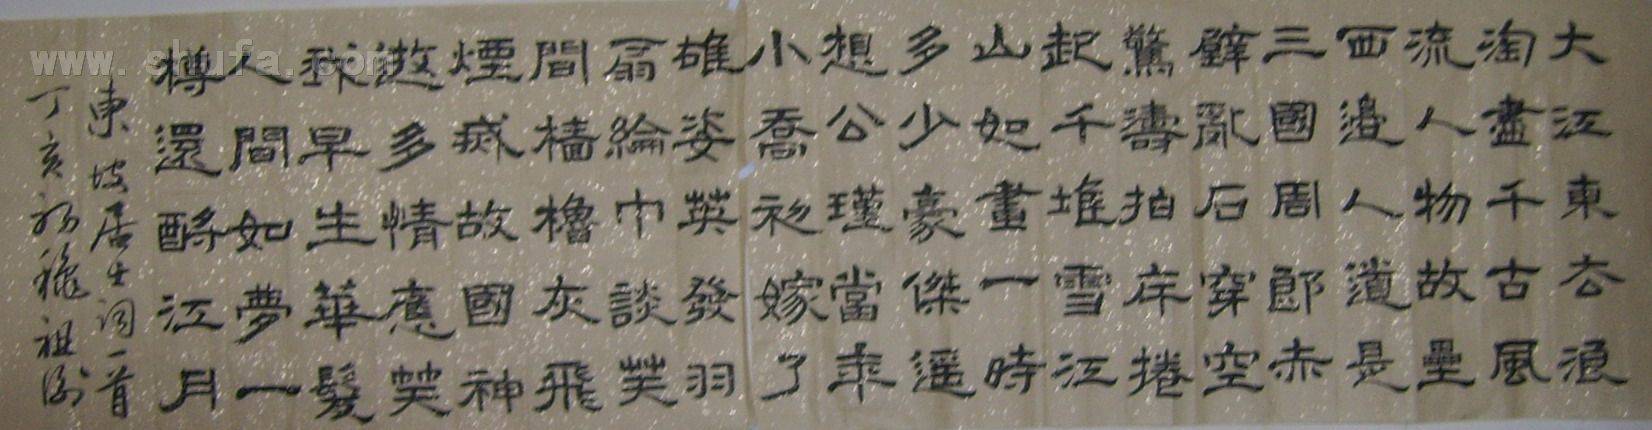 大江東去浪
淘盡千古風
流人物故壘
西邊人道是
三國周郎赤
壁亂石穿空
驚濤拍岸捲
起千堆雪江
山如畫一時
多少豪傑遥
想公瑾當年
小喬初嫁了
雄姿英發羽
扇綸巾談笑
間檣櫓灰飛
煙滅故國神
遊多情應笑
我早生華髮
人間如夢一
樽還酹江月
東坡居士词一首
丁亥初龝祖
www.shufa.com